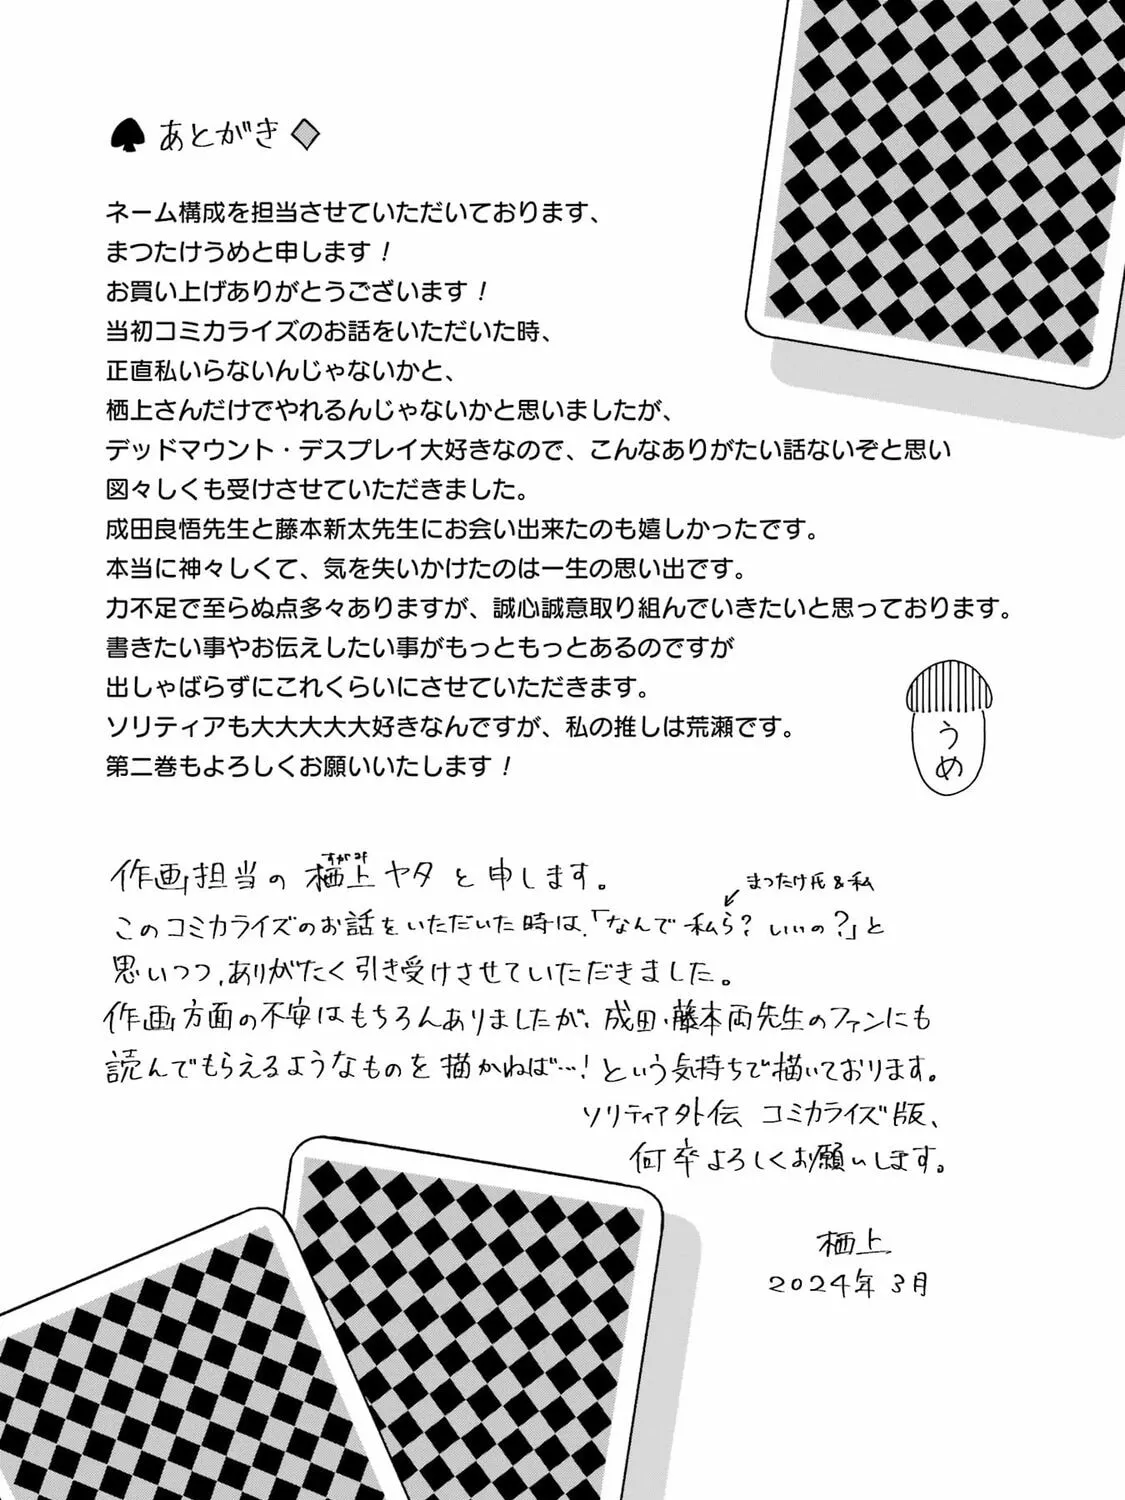 ♠あとがき◇
ネーム構成を担当させていただいております、
まつたけうめと申します！
お買い上げありがとうございます！
当初コミカライズのお話をいただいた時、
正直私いらないんじゃないかと、
栖上さんだけでやれるんじゃないかと思いましたが、
デッドマウント・デスプレイ大好きなので、こんなありがたい話ないぞと思い
図々しくも受けさせていただきました。
成田良悟先生と藤本新太先生にお会い出来たのも嬉しかったです。
本当に神々しくて、気を失いかけたのは一生の思い出です。
力不足で至らぬ点多々ありますが、誠心誠意取り組んでいきたいと思っております。
書きたい事やお伝えしたい事がもっともっとあるのですが
出しゃばらずにこれくらいにさせていただきます。
ソリティアも大大大大大好きなんですが、私の推しは荒瀬です。
第二巻もよろしくお願いいたします！
うめ
すがみ
作画担当の栖上ヤタと申します。
まつたけ氏&私
このコミカライズのお話をいただいた時は、「なんで私ら？いいの？」と
思いつつ、ありがたく引き受けさせていただきました。
作画方面の不安はもちろんありましたが、成田・藤本両先生のファンにも
読んでもらえるようなものを描かねば…！という気持ちで描いております。
ソリティア外伝 コミカライズ版、
何卒よろしくお願いします。
栖上
2024年3月